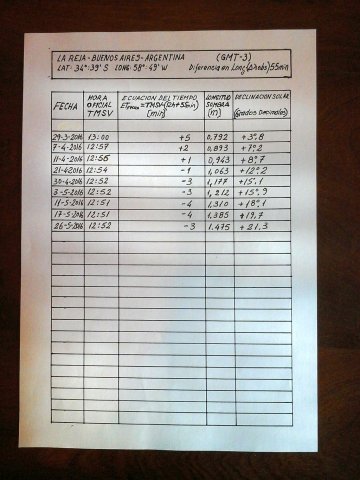 LA REJA - BUENOS AIRES - ARGENTINA (GMT-3)
LAT: 34°-39' S LONG: 58°-49' W Diferencia en Long 55min
FECHA HORA OFICIAL TMSV ECUACION DEL TIEMPO [min] LONGITUD SOMBRA (m) DECLINACION SOLAR (grados decimales)
29-3-2016 13:00 +5 0,792 +3°,8
7-4-2016 12:57 +2 0,893 +7°,2
11-4-2016 12:56 +1 0,943 +8°,7
21-4-2016 12:54 -1 1,063 +12°,2
30-4-2016 12:52 -3 1,177 +15°,1
3-5-2016 12:52 -3 1,212 +15°,9
11-5-2016 12:51 -4 1,310 +18°,1
17-5-2016 12:51 -4 1,385 +19,7
26-5-2016 12:52 -3 1.475 +21,3